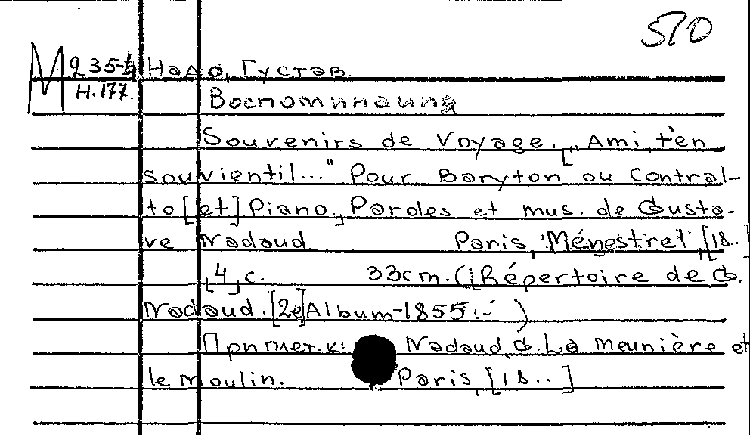 510
М 235-4 Надо, Густав.
Н.177
Воспоминания
Souvenirs de Voyage. „Ami, t'en
souvientil..." Pour Baryton ou Contral-
to [et] Piano, Paroles et mus. de Gusta-
ve Nadaud Paris, "Ménestrel", [18..
[4] с. 33cm. (Répertoire de G.
Nadaud. [2e] Album-1855.- )
Приплет. к: Nadaud, G. La meunière et
le moulin. Paris, [18..]